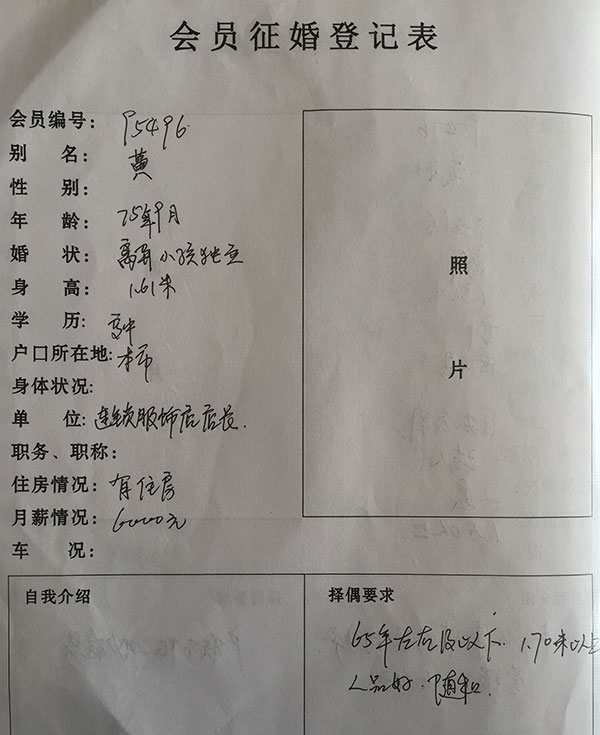 会员征婚登记表
会员编号: P5496
别 名: 黄
性 别:
年 龄: 75年9月
婚 状: 离异小孩独立
身 高: 1.61米
学 历: 高中
户口所在地: 本市
身体状况:
单 位: 连锁服饰店店长.
职务、职称:
住房情况: 有住房
月薪情况: 6000元
车 况:
照
片
自我介绍
择偶要求
65年左右及以下. 1.70米以上
人品好. 随和.